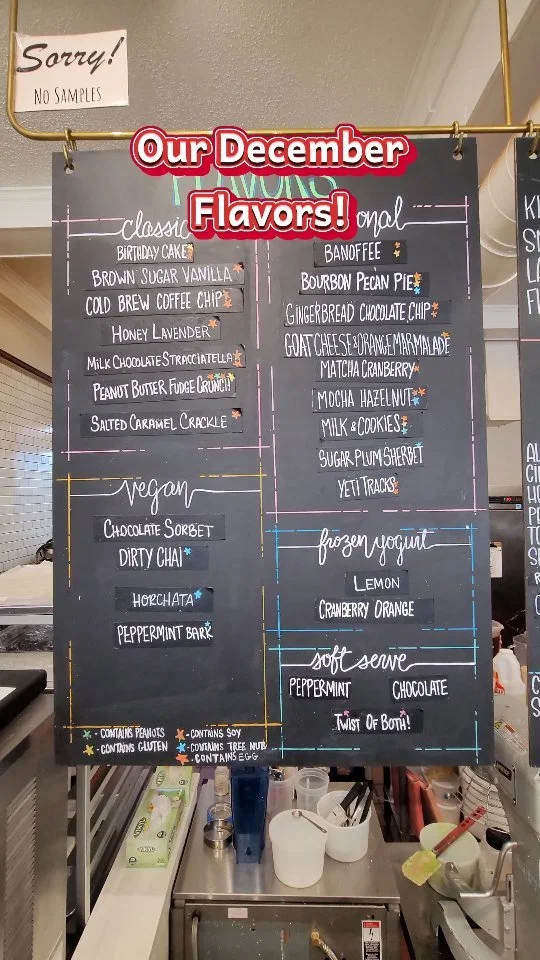 Sorry!
NO SAMPLES
Our December
Flavors!
FLAVORS
classic
BIRTHDAY CAKE
BROWN SUGAR VANILLA
COLD BREW COFFEE CHIP
HONEY LAVENDER
MILK CHOCOLATE STRACCIATELLA
PEANUT BUTTER FUDGE CRUNCH
SALTED CARAMEL CRACKLE
vegan
CHOCOLATE SORBET
DIRTY CHAI
HORCHATA
PEPPERMINT BARK
- CONTAINS PEANUTS
- CONTAINS GLUTEN
- CONTAINS SOY
- CONTAINS TREE NUTS
- CONTAINS EGG
onal
BANOFFEE
BOURBON PECAN PIE
GINGERBREAD CHOCOLATE CHIP
GOAT CHEESE & ORANGE MARMALADE
MATCHA CRANBERRY
MOCHA HAZELNUT
MILK & COOKIES
SUGAR PLUM SHERBET
YETI TRACKS
frozen yogurt
LEMON
CRANBERRY ORANGE
soft serve
PEPPERMINT CHOCOLATE
TWIST OF BOTH!
VINYL